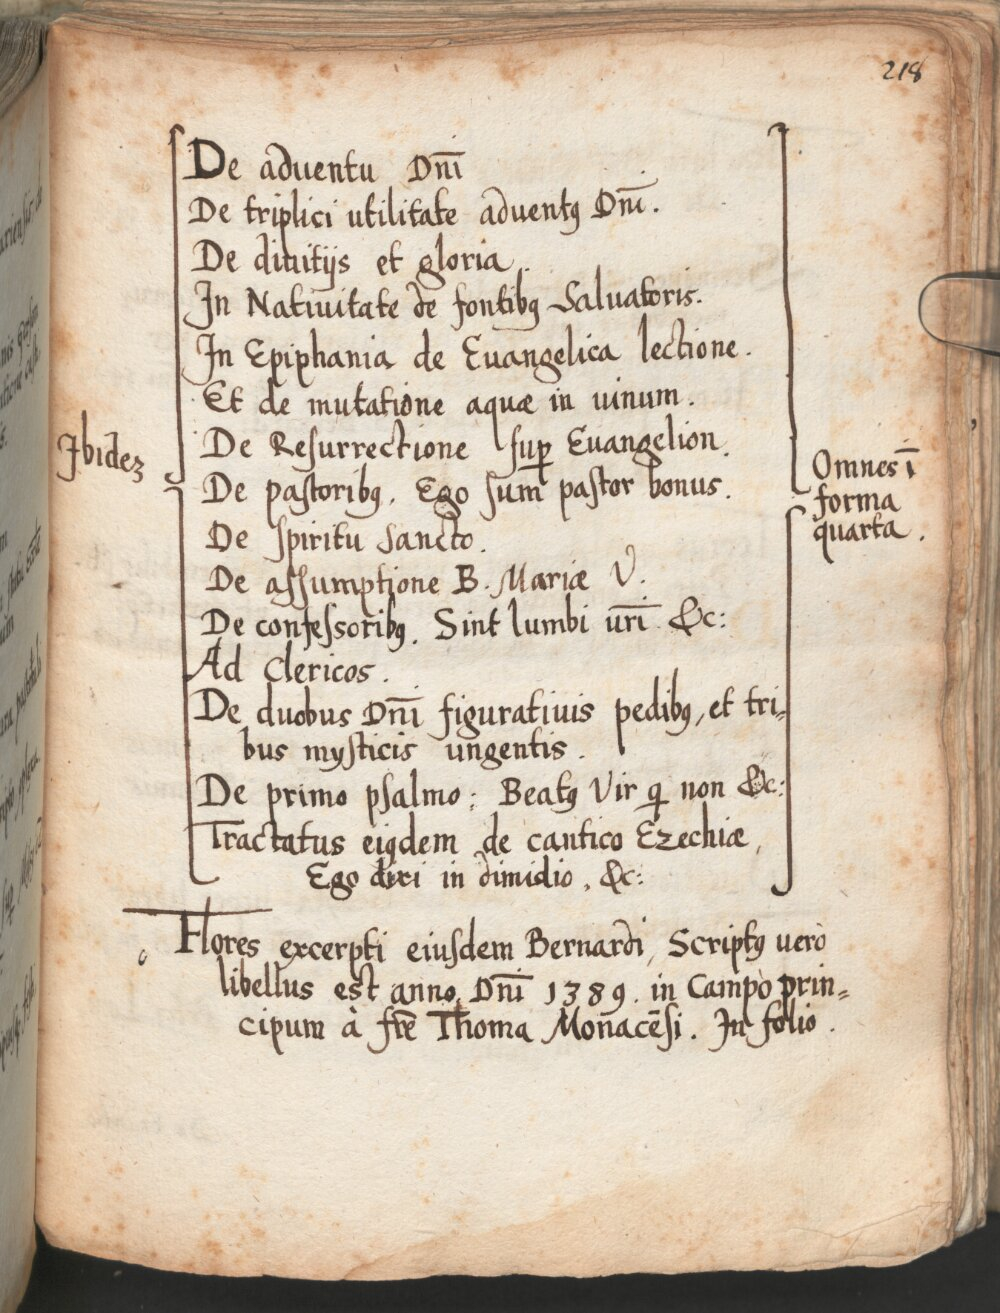 218
De adventu Dnī
De triplici utilitate adventꝰ Dnī.
De diuitijs et gloria.
In Natiuitate de fontibꝰ Saluatoris.
In Epiphania de Euangelica lectione.
Et de mutatione aquæ in uinum.
De Reſurrectione ſuꝑ Euangelion.
Ibidez
De paſtoribꝰ. Ego ſum paſtor bonus.
Omnes ī
forma
quarta.
De ſpiritu Sancto.
De aſſumptione B. Mariæ V.
De confeſsoribꝰ. Sint lumbi ur̄i &c:
Ad Clericos.
De duobus Dnī figuratiuis pedibꝰ, et tri-
bus myſticis ungentis.
De primo pſalmo: Beatꝰ Vir q̄ non &c:
Tractatus eiꝰdem de cantico Ezechiæ,
Ego dixi in dimidio, &c:
Flores excerpti eiuſdem Bernardi, Scriptꝰ uerò
libellus est anno Dnī 1389. in Campo prin=
cipum à fr̄e Thoma Monacēſi. In folio.